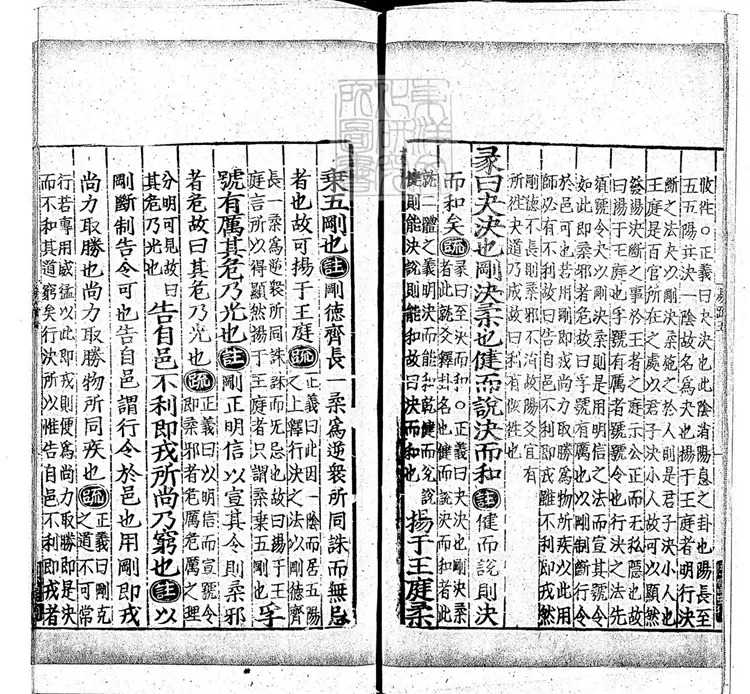 攸往○正義曰夬決也此陰消陽息之卦也陽長至
五五陽共決一陰故名為夬也揚于王庭者明行決
斷之法夬以剛決柔施之於人則是君子決小人也
王庭是百官所在之處以君子決小人故可以顯然
發揚決斷之事於王者之庭示公正而无私隱也故
曰揚于王庭也孚號有厲者號號令也行決之法先
須號令夬以剛決柔則是用明信之法而宣其號令
如此即柔邪者危故曰孚號有厲也以剛制斷行令
於邑可也若用剛即戎尚力取勝為物所疾以此用
師必有不利故曰告自邑不利即戎雖不利即戎然
剛德不長則柔邪不消故陽爻宜有
所往夬道乃成故曰利有攸往也
彖曰夬決也剛決柔也健而說決而和註健而說則決
而和矣疏彖曰至決而和○正義曰夬決也剛決柔
者此就爻釋卦名也健而說決而和者此
就二體之義明決而能和乾健而兌說
健則能決說則能和故曰決而和也
揚于王庭柔
乘五剛也註剛德齊長一柔為逆衆所同誅而無忌
者也故可揚于王庭疏正義曰此因一陰而居五陽
之上釋行決之法以剛德齊
長一柔為逆衆所同誅而无忌也故曰揚于王
庭言所以得顯然揚于王庭者只謂柔乘五剛也
孚
號有厲其危乃光也註剛正明信以宣其令則柔邪
者危故曰其危乃光也疏正義曰以明信而宣號令
即柔邪者危厲危厲之理
分明可見故曰
其危乃光也
告自邑不利即戎所尚乃窮也註以
剛斷制告令可也告自邑謂行令於邑也用剛即戎
尚力取勝也尚力取勝物所同疾也疏正義曰剛克
之道不可常
行若專用威猛以此即戎則便為尚力取勝即是決
而不和其道窮矣行決所以惟告自邑不利即戎者